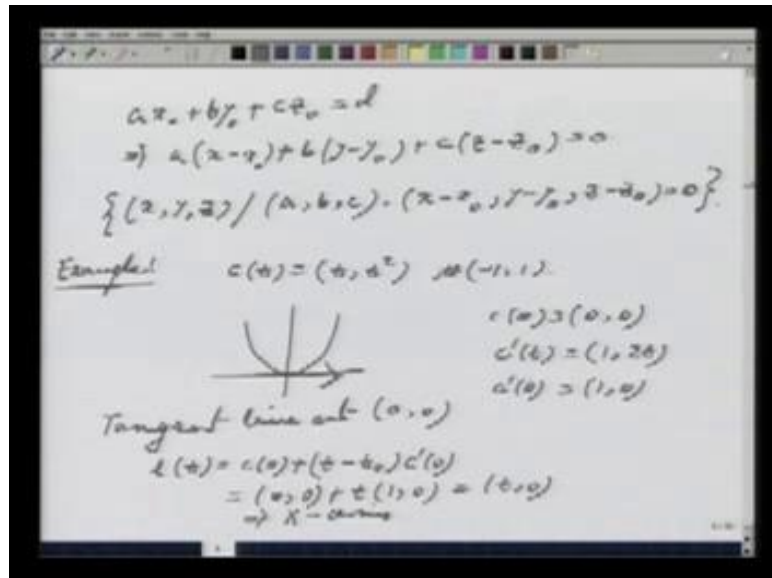 ax₀ + by₀ + cz₀ = d
⇒ a(x-x₀) + b(y-y₀) + c(z-z₀) = 0
{(x, y, z) / (a, b, c) · (x-x₀, y-y₀, z-z₀) = 0}
Example: c(t) = (t, t²) (-1, 1).
c(0) = (0, 0)
c'(t) = (1, 2t)
c'(0) = (1, 0)
Tangent line at (0, 0)
l(t) = c(0) + (t-t₀) c'(0)
= (0, 0) + t(1, 0) = (t, 0)
⇒ X-axis